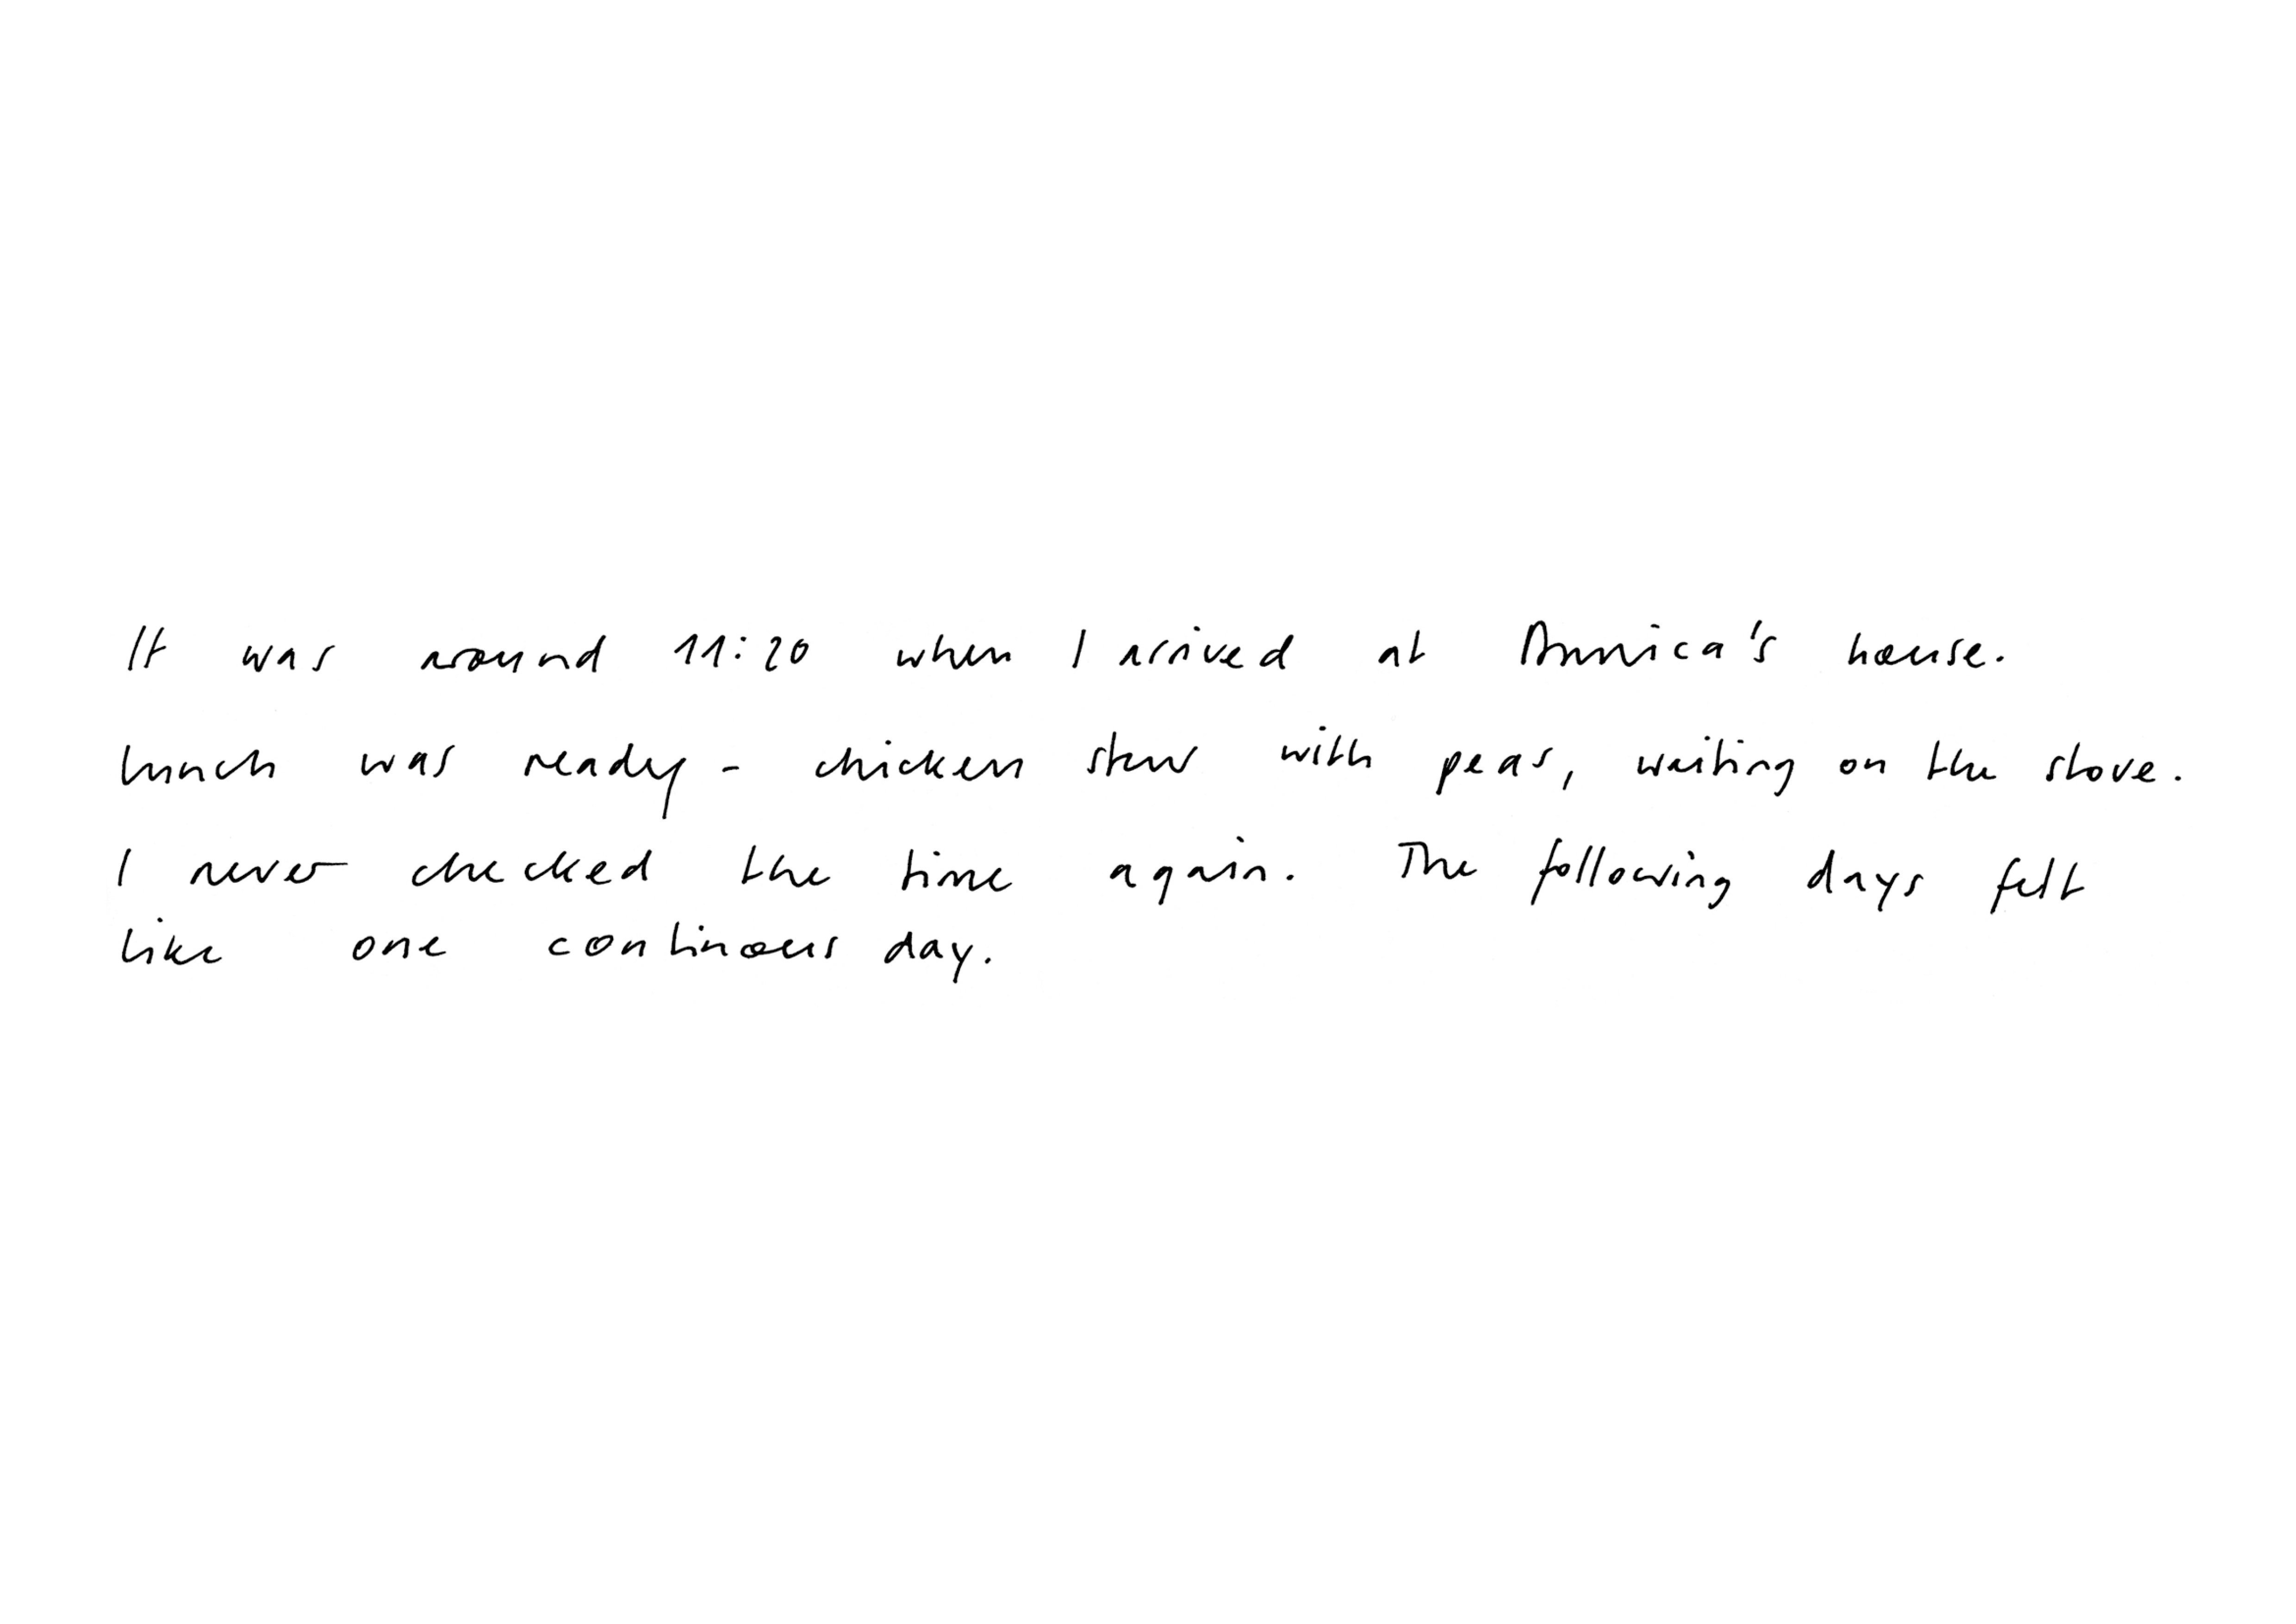 It was around 11:20 when I arrived at Annica's house.
Lunch was ready - chicken stew with peas, waiting on the stove.
I never checked the time again. The following days felt
like one continous day.